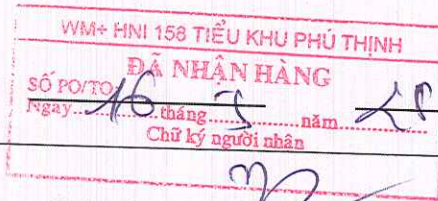 WM+ HNI 158 TIỂU KHU PHÚ THỊNH
ĐÃ NHẬN HÀNG
SỐ PO/TO
Ngày 16 tháng 5 năm 25
Chữ ký người nhân